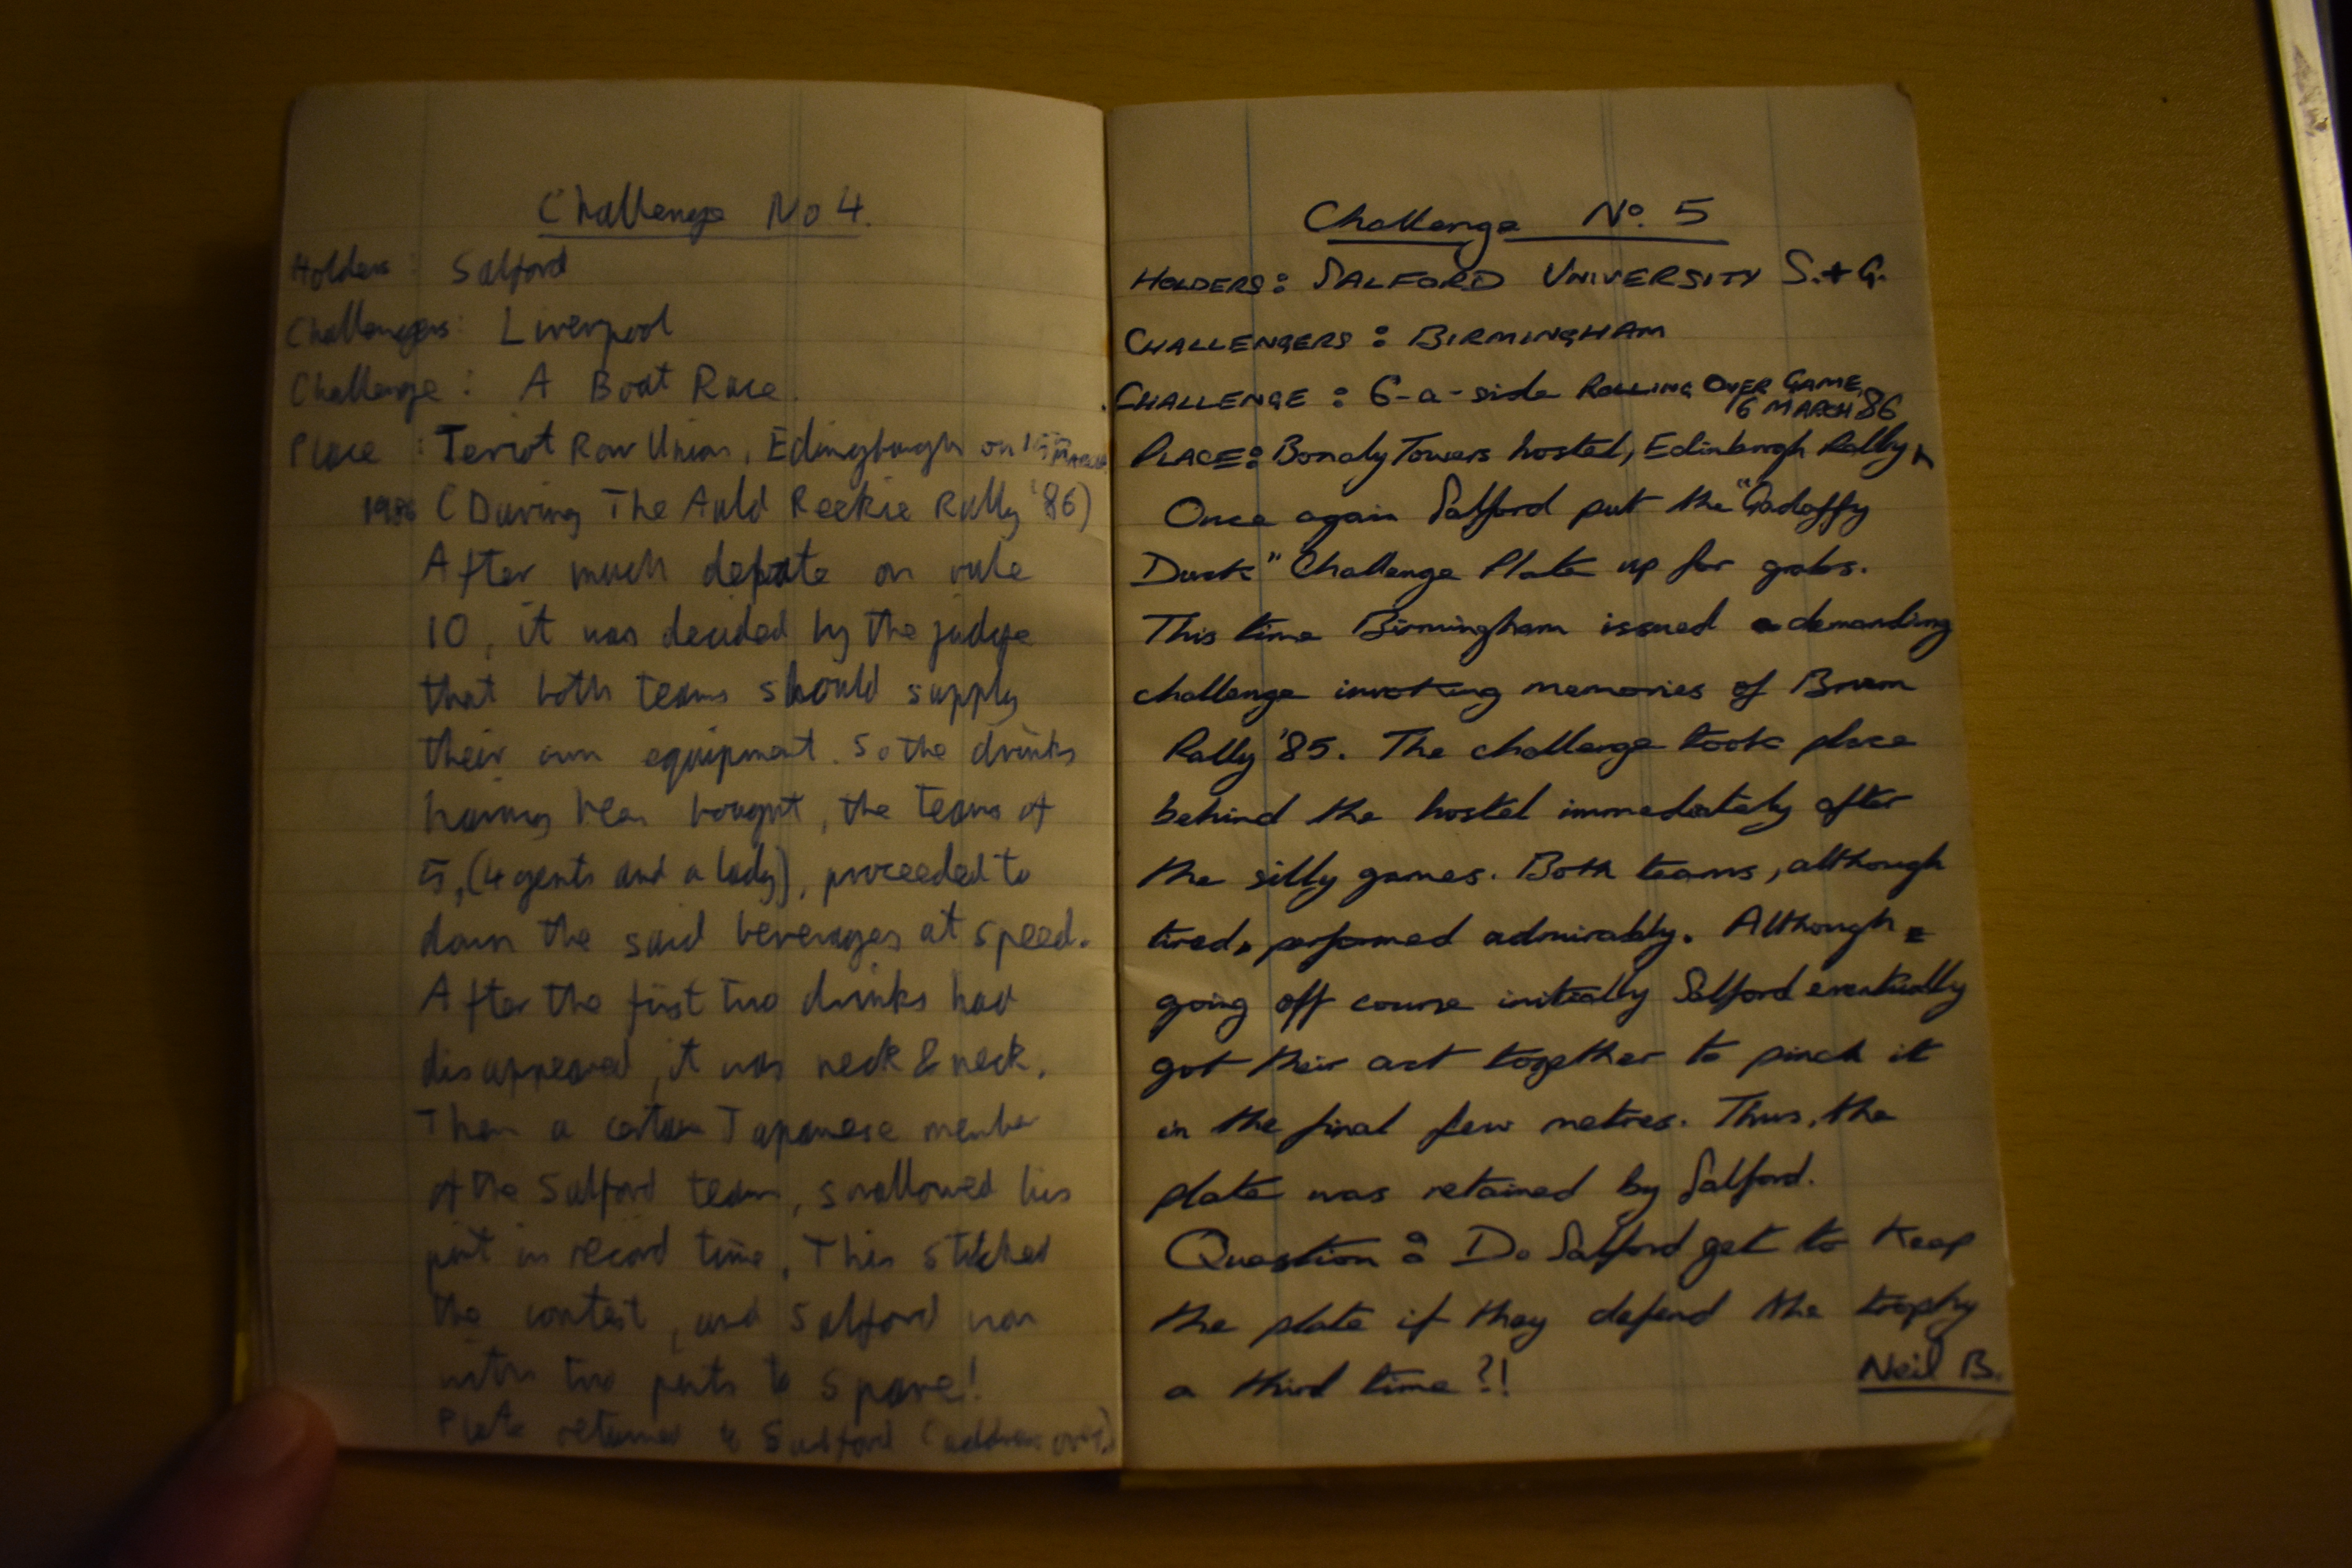 Challenge No 4.
Holders: Salford
Challengers: Liverpool
Challenge: A Boat Race.
Place: Teviot Row Union, Edingbough on 15th MARCH
1986 (During The Auld Reekie Rally '86)
After much depate on rule
10, it was decided by the judge
that both teams should supply
their own equipment. So the drinks
having been bought, the teams of
5, (4 gents and a lady), proceeded to
down the said beverages at speed.
After the first two drinks had
disappeared, it was neck & neck.
Then a certain Japanese member
of the Salford team, swallowed his
pint in record time. This stitched
the contest, and Salford won
with two pints to spare!
Plate returned to Salford (address over)
Challenge No. 5
HOLDERS: SALFORD UNIVERSITY S.+G.
CHALLENGERS: BIRMINGHAM
CHALLENGE: 6-a-side ROLLING OVER GAME,
16 MARCH '86
PLACE: Bonaly Towers hostel, Edinburgh Rally
Once again Salford put the "Gadaffy
Duck" Challenge Plate up for grabs.
This time Birmingham issued a demanding
challenge invoking memories of Brum
Rally '85. The challenge took place
behind the hostel immediately after
the silly games. Both teams, although
tired, performed admirably. Although
going off course initially Salford eventually
got their act together to pinch it
in the final few metres. Thus, the
plate was retained by Salford.
Question: Do Salford get to keep
the plate if they defend the trophy
a third time?!
Neil B.